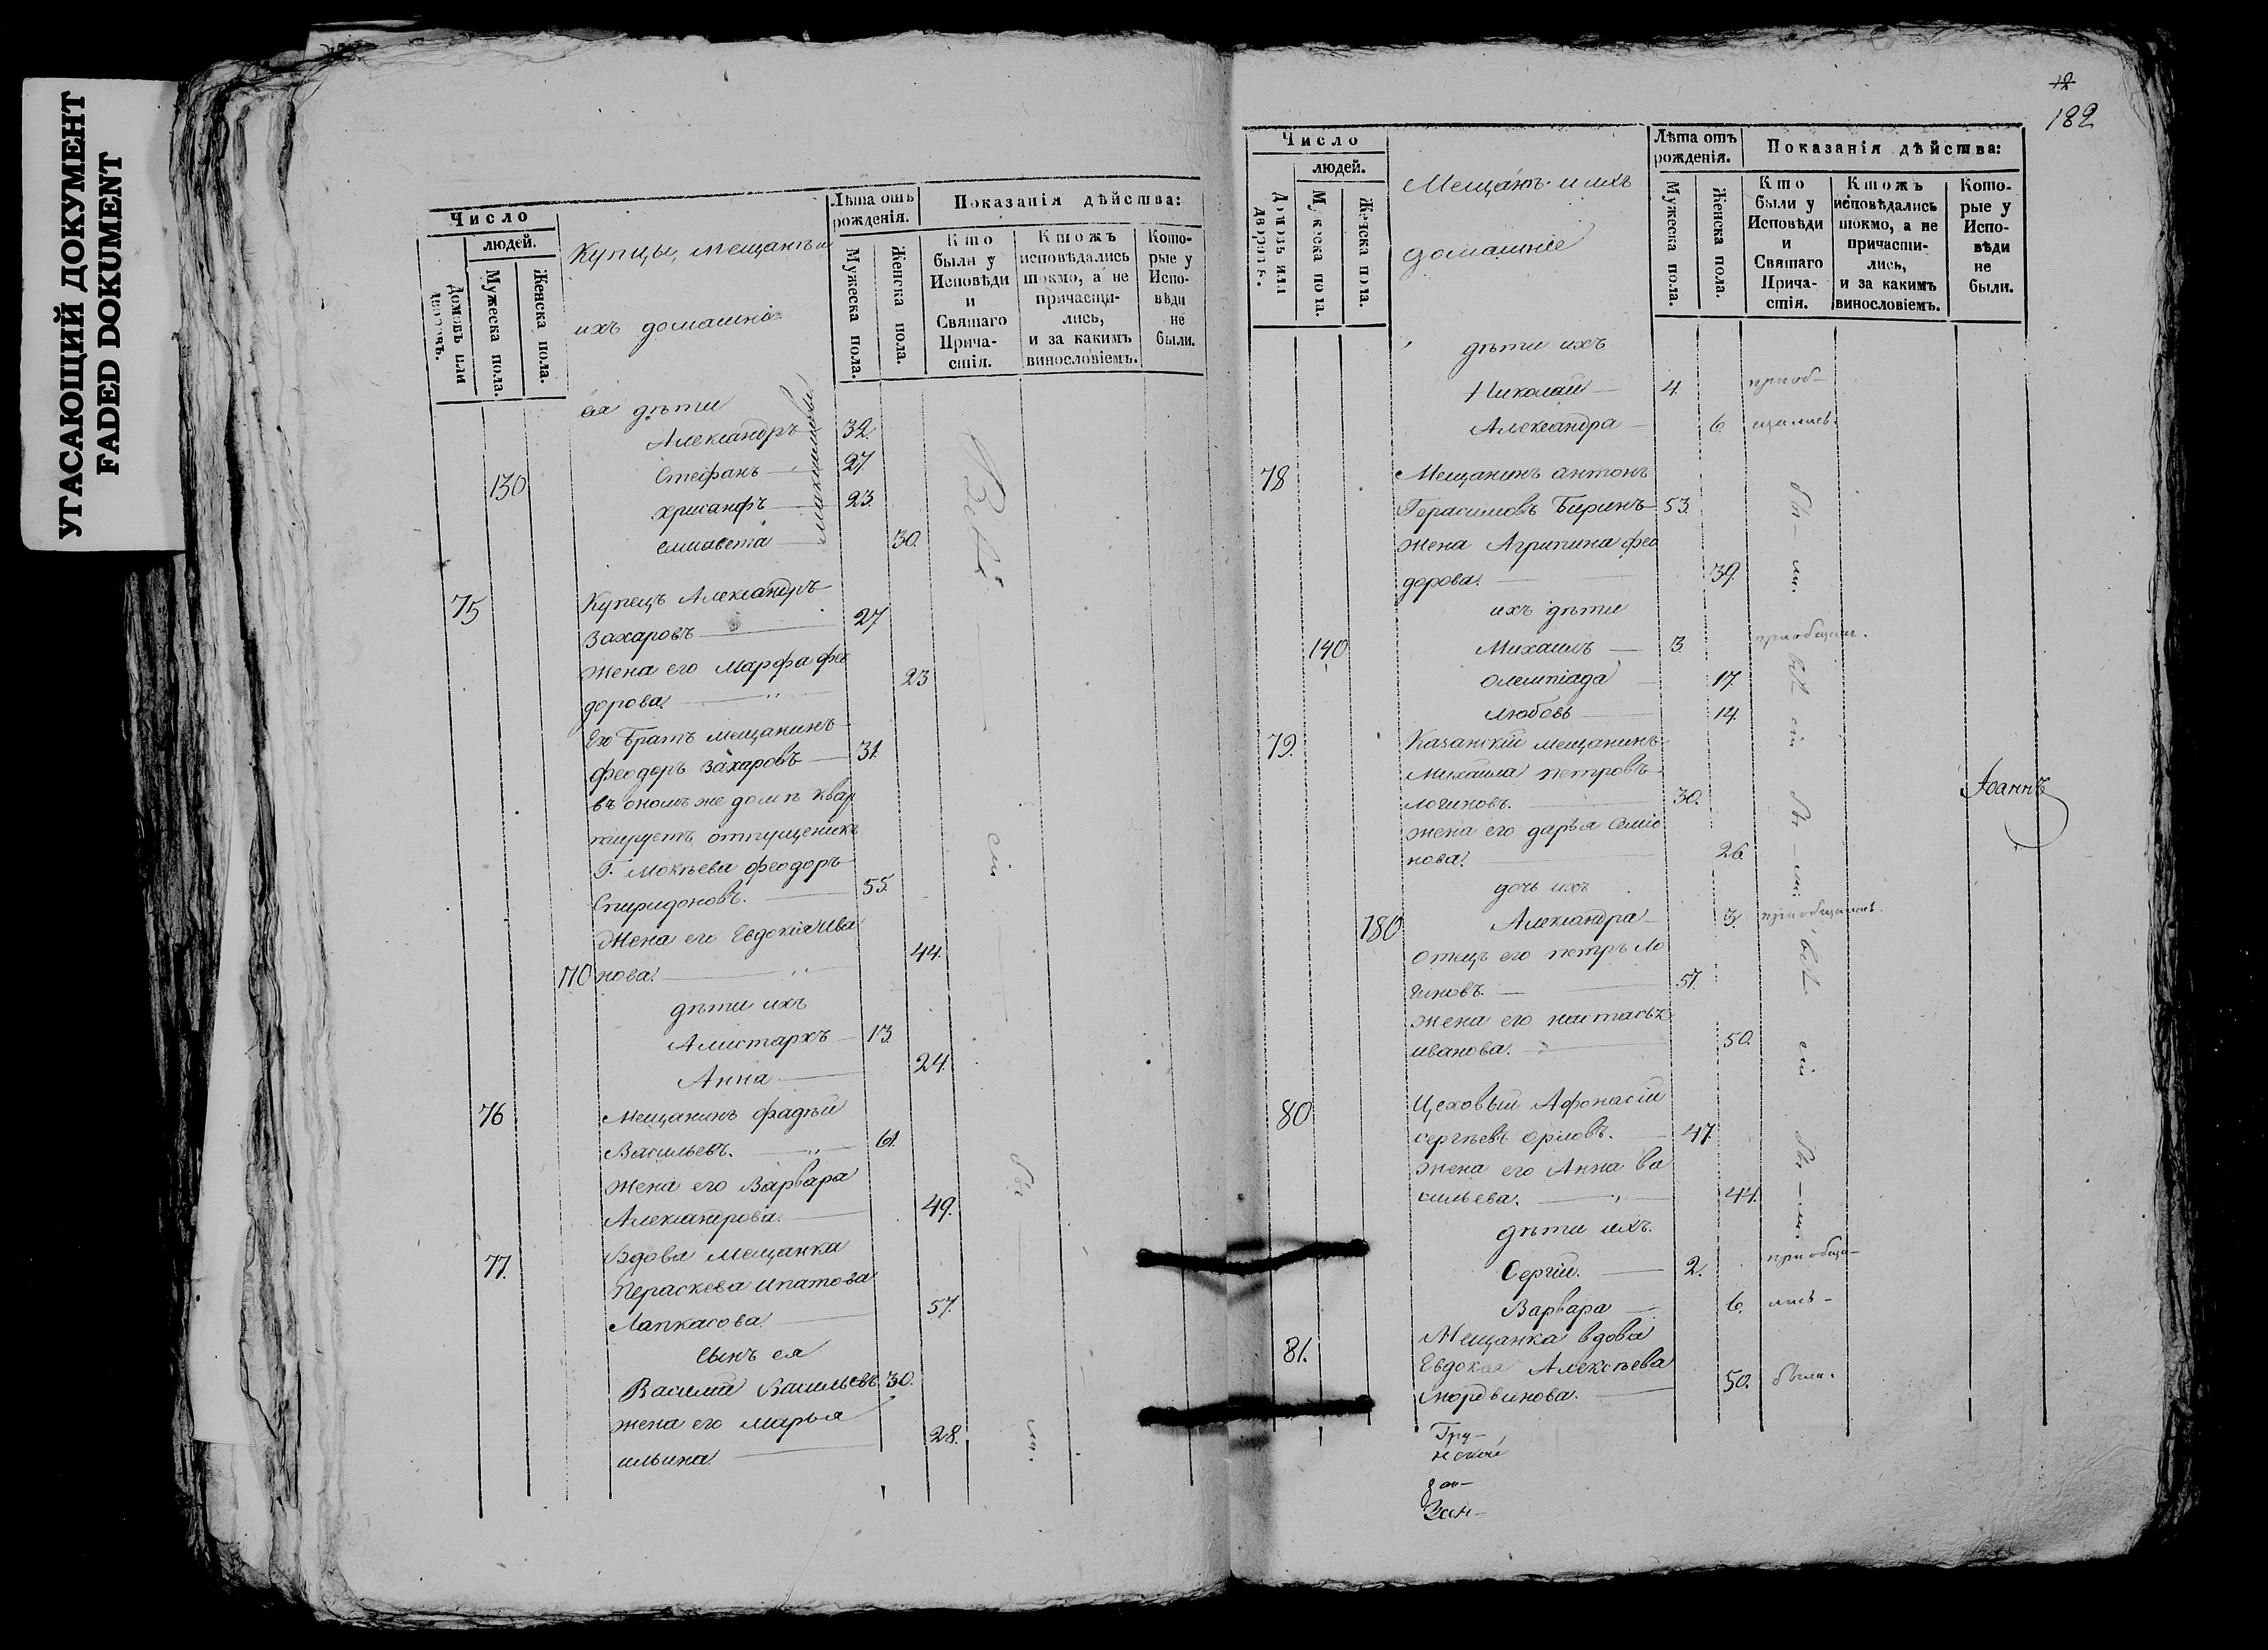 УГАСАЮЩИЙ ДОКУМЕНТ
FADED DOKUMENT
Число
людей.
Домовъ или дворовъ.
Мужеска пола.
Женска пола.
Купцы, мещанъ и
ихъ домашніе
Лѣта отъ рожденія.
Мужеска пола.
Женска пола.
Показанія дѣйства:
Кто были у Исповѣди и Святаго Причастія.
Ктожъ исповѣдались токмо, а не причастились, и за какимъ винословіемъ.
Которые у Исповѣди не были.
ея дѣти
Александръ 32.
Стефанъ 27
130 Хрисанфъ 23.
Елисавета 30.
Максимовы
Всѣ
сіи
бы
ли.
75 Купецъ Александръ
Захаровъ 27
Жена его Марфа Фео
дорова 23
Его Братъ мещанинъ
Феодоръ Захаровъ 31.
въ ономъ же домѣ квар
тируетъ отпущеникъ
Г. Мокѣева Феодоръ
Спиридоновъ. 55.
Жена его Евдокія Ива
170 нова. 44.
дѣти ихъ
Алистархъ 13.
Анна 24.
76 Мещанинъ Фадѣй
Васильевъ. 61.
Жена его Варвара
Александрова. 49.
77. Вдова мещанка
Параскева Ипатова
Лапкасова 57.
Сынъ ея
Василій Васильевъ 30.
жена его Марья
Ильина 28.
12
182
Число
людей.
Домовъ или дворовъ.
Мужеска пола.
Женска пола.
Мещанъ и ихъ
домашніе
Лѣта отъ рожденія.
Мужеска пола.
Женска пола.
Показанія дѣйства:
Кто были у Исповѣди и Святаго Причастія.
Ктожъ исповѣдались токмо, а не причастились, и за какимъ винословіемъ.
Которые у Исповѣди не были.
дѣти ихъ
Николай 4. приоб-
Александра 6. щались.
78 Мещанинъ Антонъ
Герасимовъ Биринъ 53.
Жена Агрипина Фео
дорова. 39.
бы-ли.
ихъ дѣти
140 Михаилъ 3. приобщал.
Олемпіада 17.
Любовь 14.
79. Казанскій мещанинъ
Михаила Петровъ
Логиновъ. 30.
жена его Дарья Семіо
нова. 26.
всѣ сіи бы-ли.
дочь ихъ
180 Александра 3. приобщалась.
отецъ его Петръ Ло
гиновъ. 57.
жена его Настасья
Иванова. 50.
80 Цеховый Афонасій
Сергѣевъ Орловъ. 47.
жена его Анна Ва
сильева. 44.
всѣ сіи бы-ли.
дѣти ихъ.
Сергій. 2. приобща-
Варвара 6. лись-
81. Мещанка вдова
Евдокея Алексѣева
Мордвинова. 50. была.
Іоаннъ